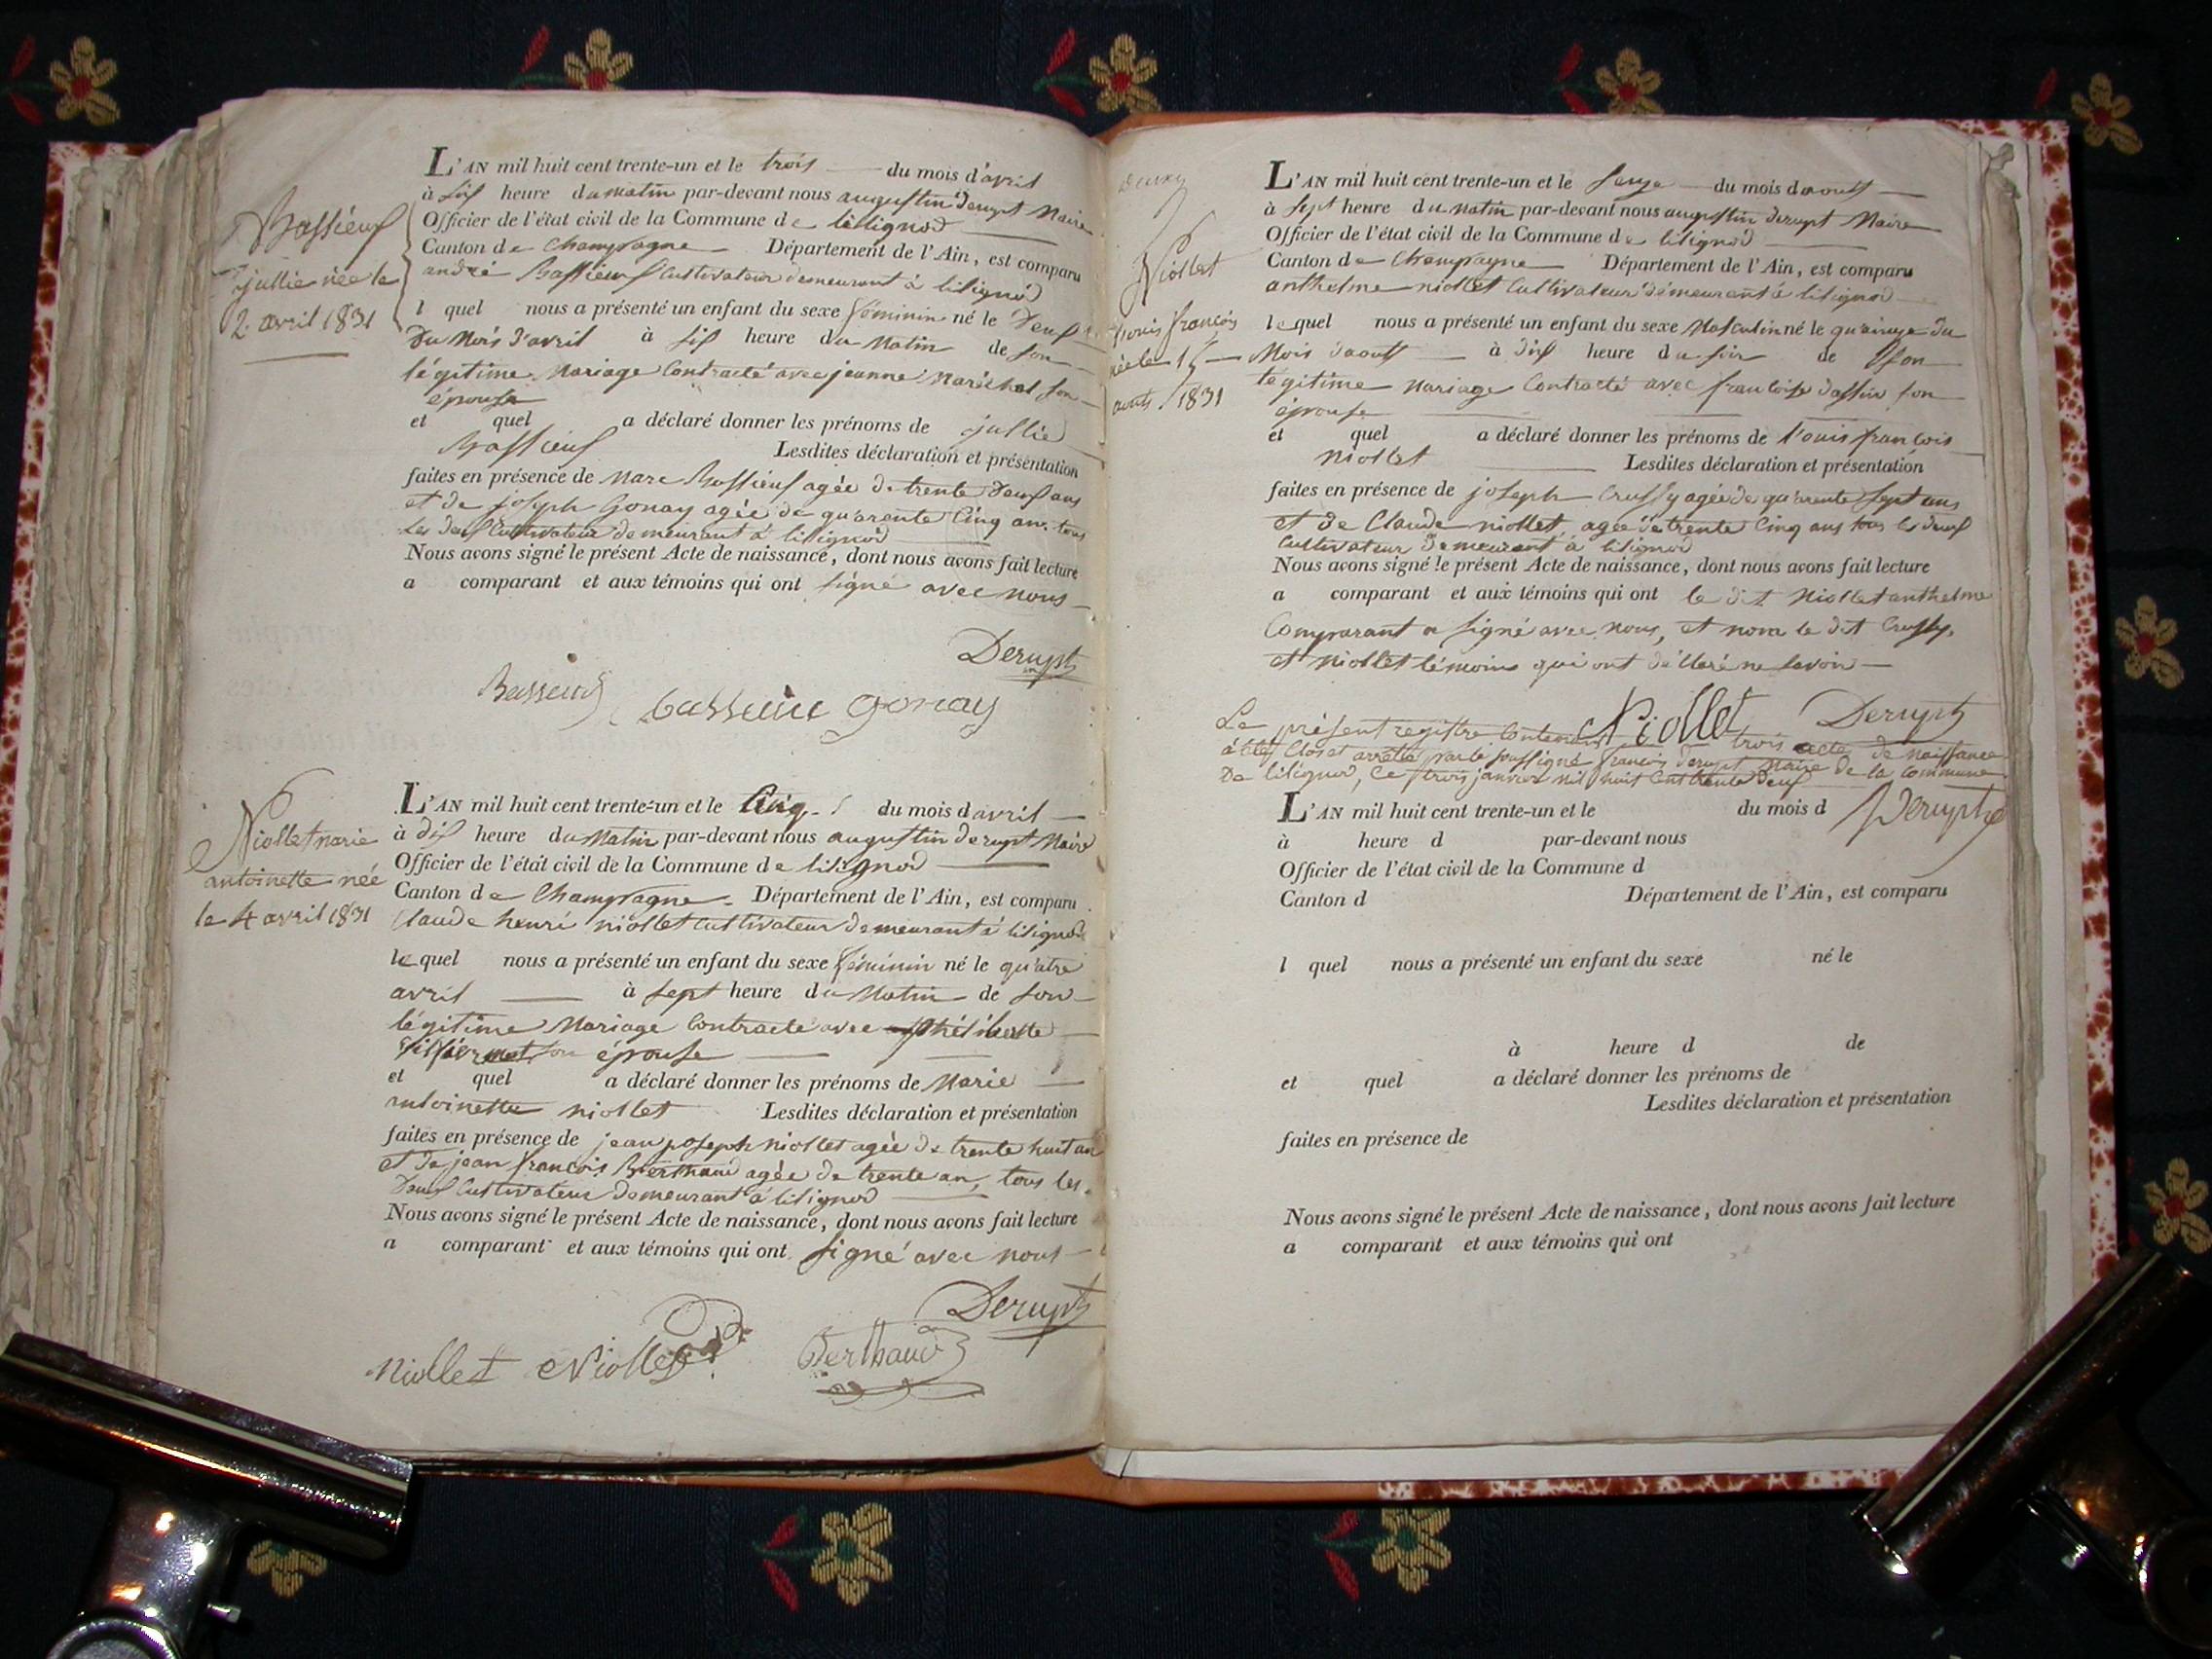 Bassieux
jullie née le
2 avril 1831
L'AN mil huit cent trente-un et le trois du mois d'avril
à six heure du matin par-devant nous augustin derupt Maire
Officier de l'état civil de la Commune de lilignod
Canton de Champagne Département de l'Ain, est comparu
andré Bassieux Cultivateur demeurant à lilignod
l quel nous a présenté un enfant du sexe féminin né le Deux
Du Mois d'avril à six heure du Matin de son
légitime Mariage Contracté avec jeanne Maréchal son
épouse
et quel a déclaré donner les prénoms de jullie
Bassieux Lesdites déclaration et présentation
faites en présence de Marc Bassieux agée de trente Deux ans
et de joseph Gonay agée de quarente Cinq an. tous
Les deux Cultivateur demeurant à lilignod
Nous avons signé le présent Acte de naissance, dont nous avons fait lecture
a comparant et aux témoins qui ont signé avec nous
Derupt
gonay
Niollet marie
antoinette née
le 4 avril 1831
L'AN mil huit cent trente-un et le Cinq du mois d avril
à dix heure du Matin par-devant nous augustin derupt Maire
Officier de l'état civil de la Commune de lilignod
Canton de Champagne Département de l'Ain, est comparu
Claude henri niollet Cultivateur demeurant à lilignod
le quel nous a présenté un enfant du sexe féminin né le quatre
avril à sept heure du Matin de son
légitime Mariage Contracté avec philiberte
épouse
et quel a déclaré donner les prénoms de Marie
antoinette niollet Lesdites déclaration et présentation
faites en présence de jean joseph niollet agée de trente huit an
et de jean françois Berthaud agée de trente an, tous les
Deux Cultivateur demeurant à lilignod
Nous avons signé le présent Acte de naissance, dont nous avons fait lecture
a comparant et aux témoins qui ont signé avec nous
Derupt
Niollet Niollet Berthaud
Niollet
Louis françois
née le 15
aoult 1831
L'AN mil huit cent trente-un et le seize du mois d aoult
à sept heure du Matin par-devant nous augustin derupt Maire
Officier de l'état civil de la Commune de lilignod
Canton de Champagne Département de l'Ain, est comparu
anthelme niollet Cultivateur demeurant à lilignod
le quel nous a présenté un enfant du sexe Masculin né le quainze du
Mois daoult à dix heure du soir de son
legitime Mariage Contracté avec francoise dassin son
épouse
et quel a déclaré donner les prénoms de Louis francois
niollet Lesdites déclaration et présentation
faites en présence de joseph Crussy agée de quarente sept ans
et de Claude niollet, agée de trente Cinq ans tous les deux
Cultivateur demeurant à lilignod
Nous avons signé le présent Acte de naissance, dont nous avons fait lecture
a comparant et aux témoins qui ont le dit Niollet anthelme
Comparant a signé avec nous, et nom le dit Crussy,
et Niollet témoins qui ont déclaré ne savoir
Niollet Derupt
Le présent registre Contenant trois acte de naissance
à été Clos et arretée par le soussigné francois derupt Maire de la Commune
De lilignod, Ce trois janvier mil huit Cent trente Deux
Derupt
L'AN mil huit cent trente-un et le du mois d
à heure d par-devant nous
Officier de l'état civil de la Commune d
Canton d Département de l'Ain, est comparu
l quel nous a présenté un enfant du sexe né le
à heure d de
et quel a déclaré donner les prénoms de
Lesdites déclaration et présentation
faites en présence de
Nous avons signé le présent Acte de naissance, dont nous avons fait lecture
a comparant et aux témoins qui ont